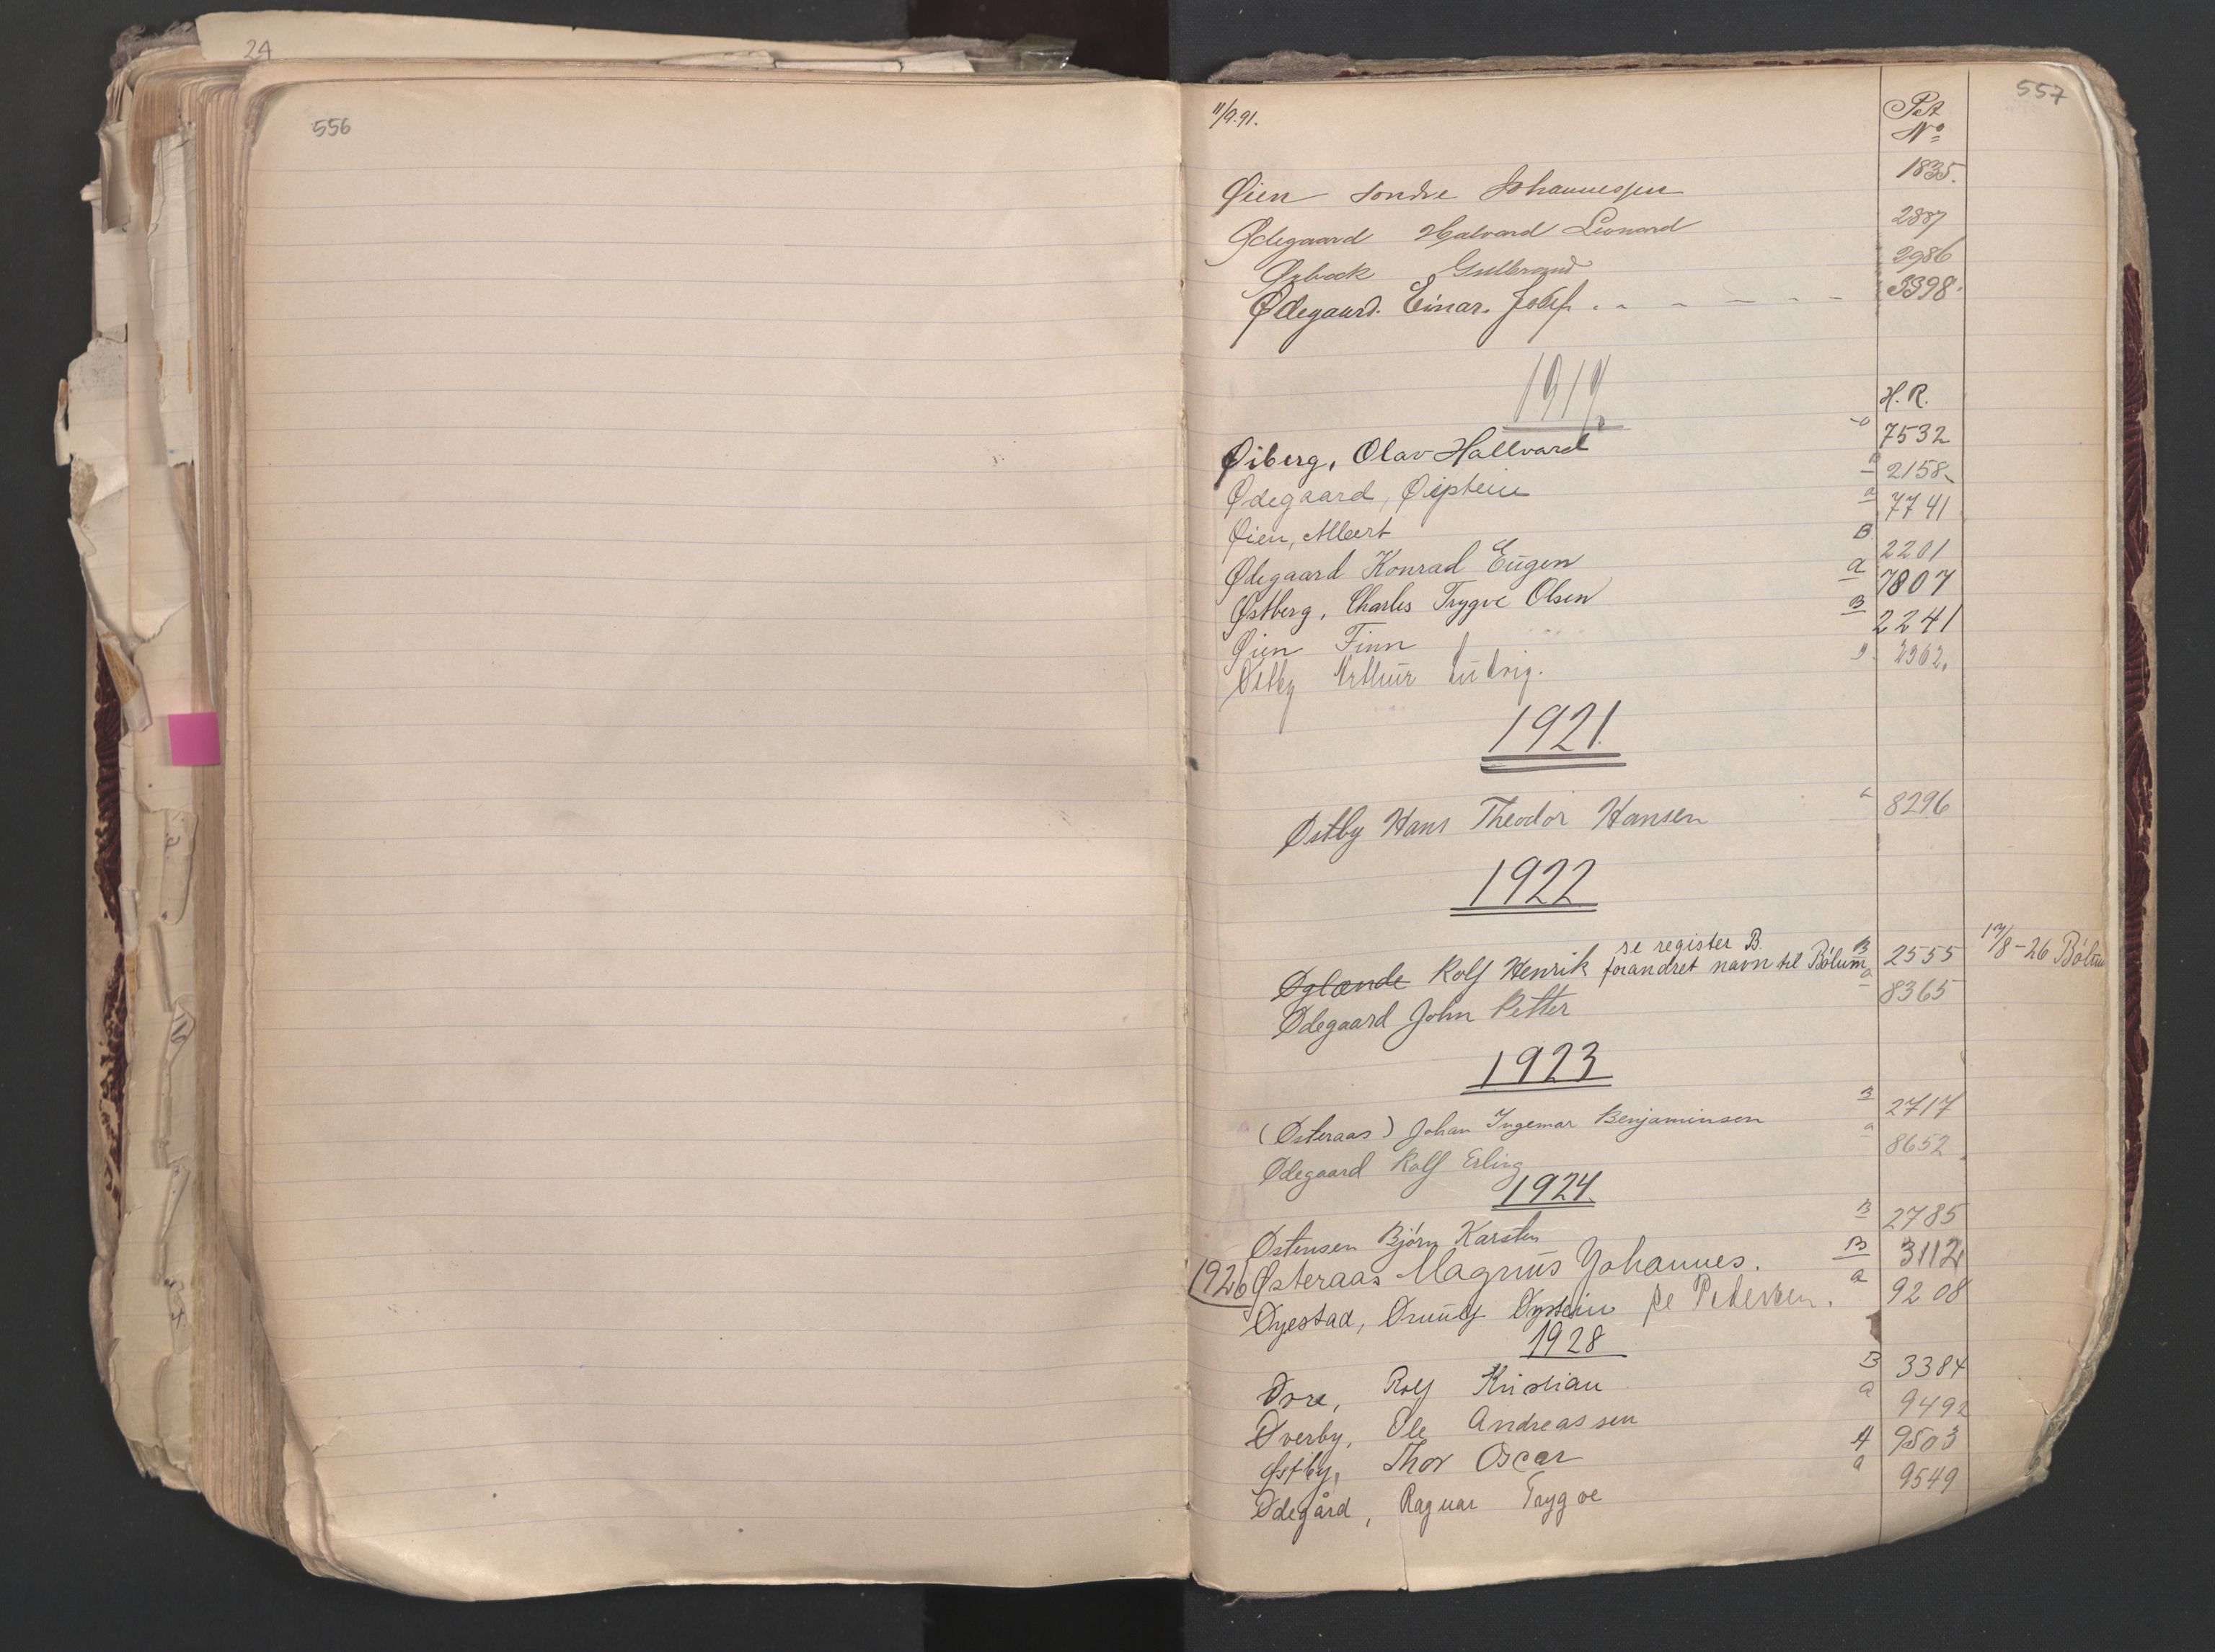 24
556
557
11/9.91.
Pat
No
Øien Søndre Johannessen 1835.
Ødegaard Halvard Leonard 2887
Gulbrand 2986
Ødegaard. Einar. Josef. 3398.
1919.
H.R.
Øiberg, Olav Hallvard a 7532
Ødegaard, Øistein B 2158.
Øien, Albert a 7741
Ødegaard Konrad Eugen B 2201
Østberg, Charles Trygve Olsen a 7807
Øien Finn B 2241
Østby Arthur Ludvig. 2362.
1921.
Østby Hans Theodor Hansen a 8296
1922
se register B.
Øglænde Rolf Henrik forandret navn til Bølum B 2555 17/8-26 Bølum
Ødegaard John Petter a 8365
1923
(Østeraas) Johan Ingemar Benjaminsen B 2717
Ødegaard Rolf Erling a 8652
1924.
Østensen Bjørn Karsten B 2785
1926 Østeraas Magnus Johannes. B 3112
Øyestad, Ørnulf Øystein se Pedersen. a 9208
1928
Øvre, Rolf Kristian B 3384
Øverby, Ole Andreassen a 9492
Østby, Thor Oscar A 9503
Ødegård, Ragnar Trygve a 9549